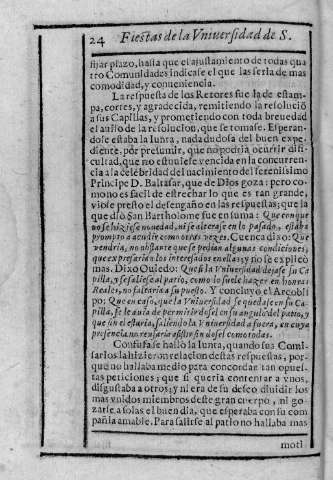 24 Fiestas de la Vniuersidad de S.
fijar plazo, hasta que el ajustamiento de todas qua
tro Comunidades indicase el que las seria de mas
comodidad, y conueniencia.
La respuesta de los Retores fue la de estam-
pa, cortes, y agradecida, remitiendo la resolució
a sus Capillas, y prometiendo con toda breuedad
el auiso de la resolucion, que se tomase. Esperan-
dose estaba la Iunta, nada dudosa del buen expe-
diente, por presumir, que no podria ocurrir difi-
cultad, que no estuuiese vencida en la concurren-
cia a la celebridad del nacimiento del serenissimo
Principe D. Baltasar, que de Dios goza: pero co-
mo no es facil de estrechar lo que es tan grande,
viose presto el desengaño en las respuestas; que la
que dió San Bartholome fue en suma: Que con que
no se hiziese nouedad, ni se alterase en lo pasado, estaba
prompto a acudir como otras vezes. Cuenca dixo: Que
vendria, no obstante que se pedian algunas condiciones,
que expresarian los interesados en ellas; y no se explicó
mas. Dixo Ouiedo: Que si la Vniuersidad dejase su Ca
pilla, y se saliese al patio, como lo suele hazer en honras
Reales, no faltaria a su puesto. Y concluyo el Arçobis
po: Que en caso, que la Vniuersidad se quedase en su Ca-
pilla, se le auia de permitir dosel en su angulo del patio, y
que sin el estaria, saliendo la Vniuersidad a fuera, en cuya
presencia no
Confusa se halló la Iunta, quando sus Comi-
sarios la hizieron relacion destas respuestas, por-
que no hallaba medio para concordar tan opues-
tas peticiones; que si queria contentar a vnos,
disgustaba a otros; y ni era su deseo diuidir los
mas vnidos miembros deste gran cuerpo, ni go-
zarle a solas el buen dia, que esperaba con su com
pañia amable. Para salirse al patio no hallaba mas
moti